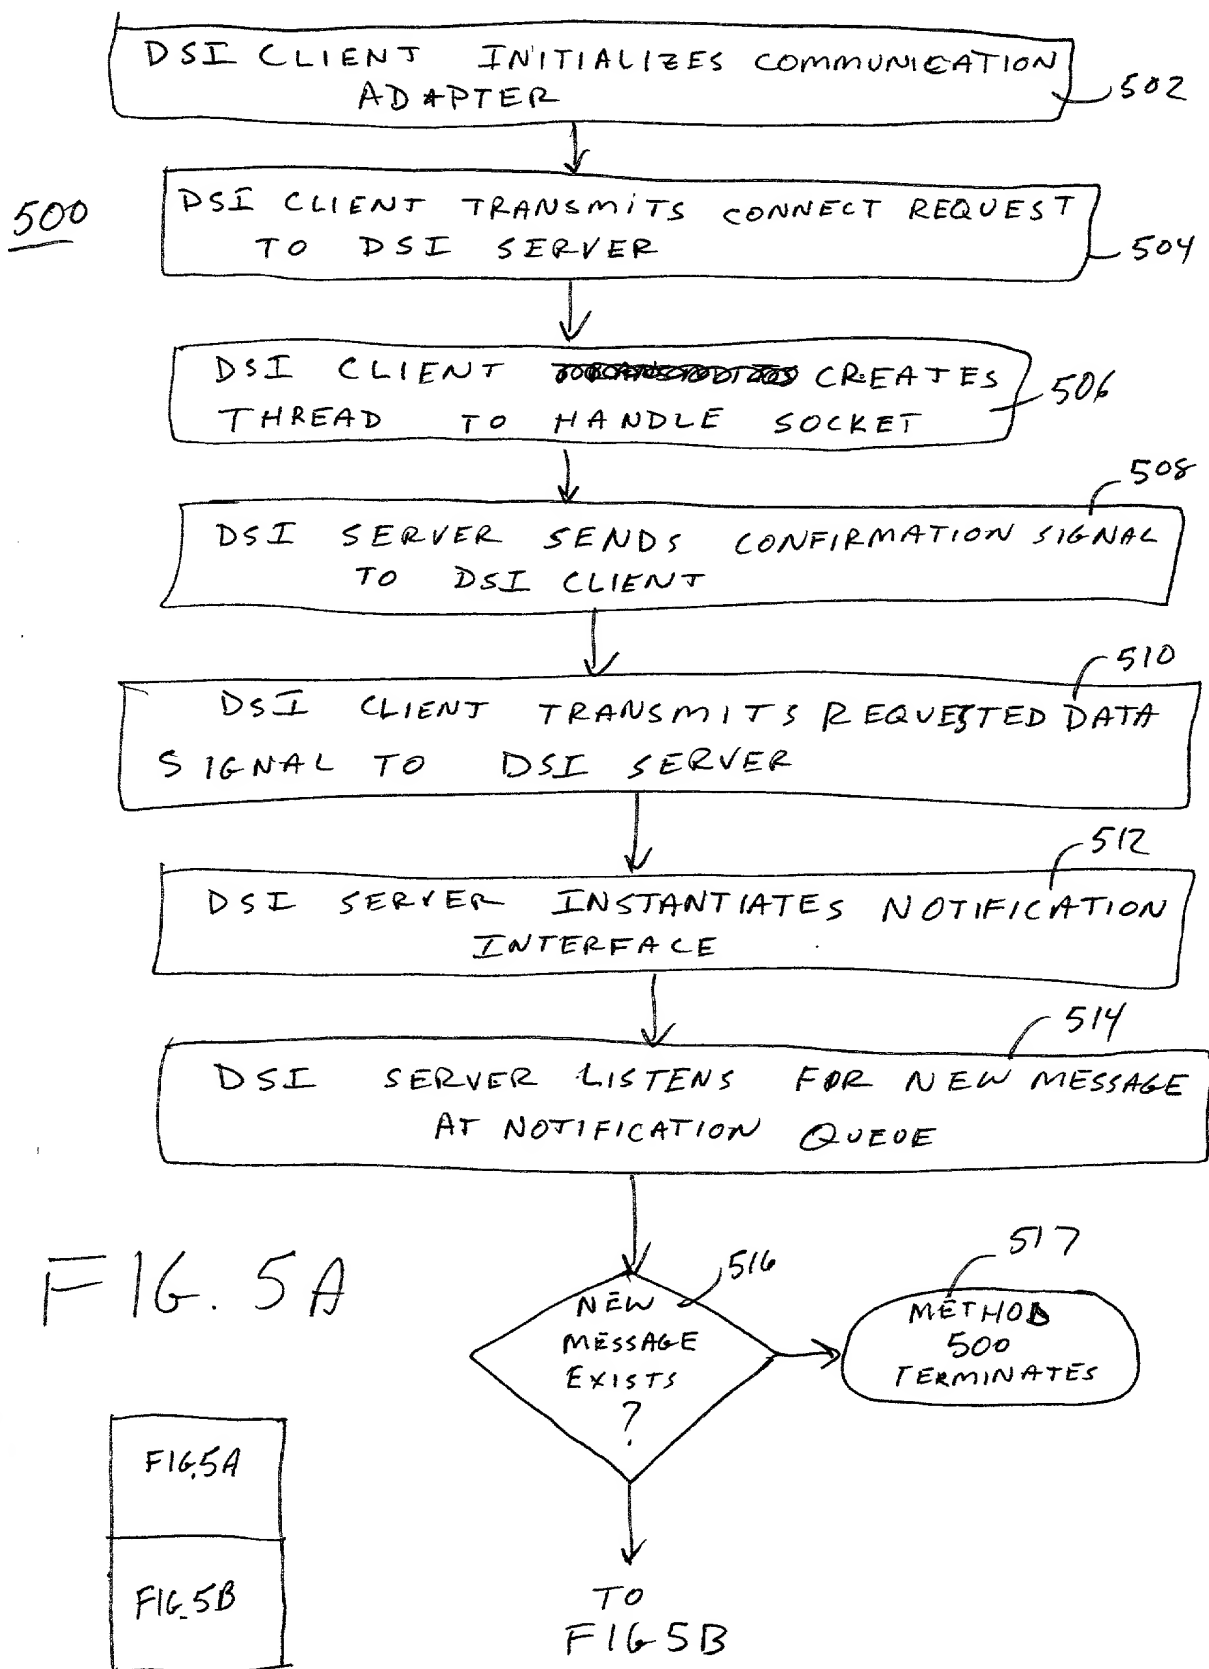 DSI CLIENT INITIALIZES COMMUNICATION
ADAPTER
502
500
DSI CLIENT TRANSMITS CONNECT REQUEST
TO DSI SERVER
504
DSI CLIENT CREATES
THREAD TO HANDLE SOCKET
506
508
DSI SERVER SENDS CONFIRMATION SIGNAL
TO DSI CLIENT
510
DSI CLIENT TRANSMITS REQUESTED DATA
SIGNAL TO DSI SERVER
512
DSI SERVER INSTANTIATES NOTIFICATION
INTERFACE
514
DSI SERVER LISTENS FOR NEW MESSAGE
AT NOTIFICATION QUEUE
FIG. 5A
516
NEW
MESSAGE
EXISTS
?
517
METHOD
500
TERMINATES
FIG. 5A
FIG. 5B
TO
FIG 5B